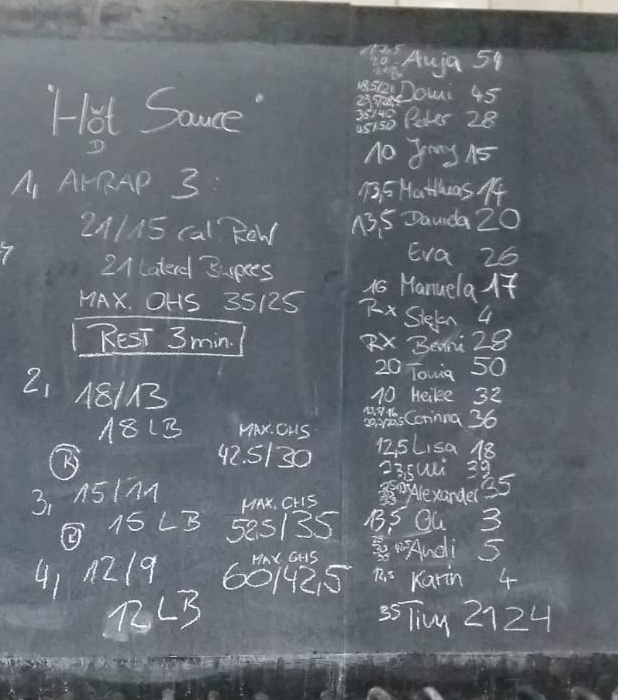 "Hot Sauce"
D
1, AMRAP 3:
21/15 cal Row
21 Lateral Burpees
MAX. OHS 35/25
REST 3 min.
2, 18/13
18 LB
MAX. OHS
42.5/30
R
3, 15/11
15 LB
MAX. OHS
52.5/35
R
4, 12/9
12 LB
MAX OHS
60/42,5
Anja 54
Domi 45
35/40 Peter 28
45/50
10 Jenny 15
13,5 Matthias 14
13,5 Daniela 20
Eva 26
16 Manuela 17
Rx Stefan 4
RX Berni 28
20 Tonia 50
10 Heike 32
Corinna 36
12,5 Lisa 18
23,5 Uli 39
Alexander 35
13,5 Oli 3
Andi 5
12,5 Karin 4
35 Tim 21 24